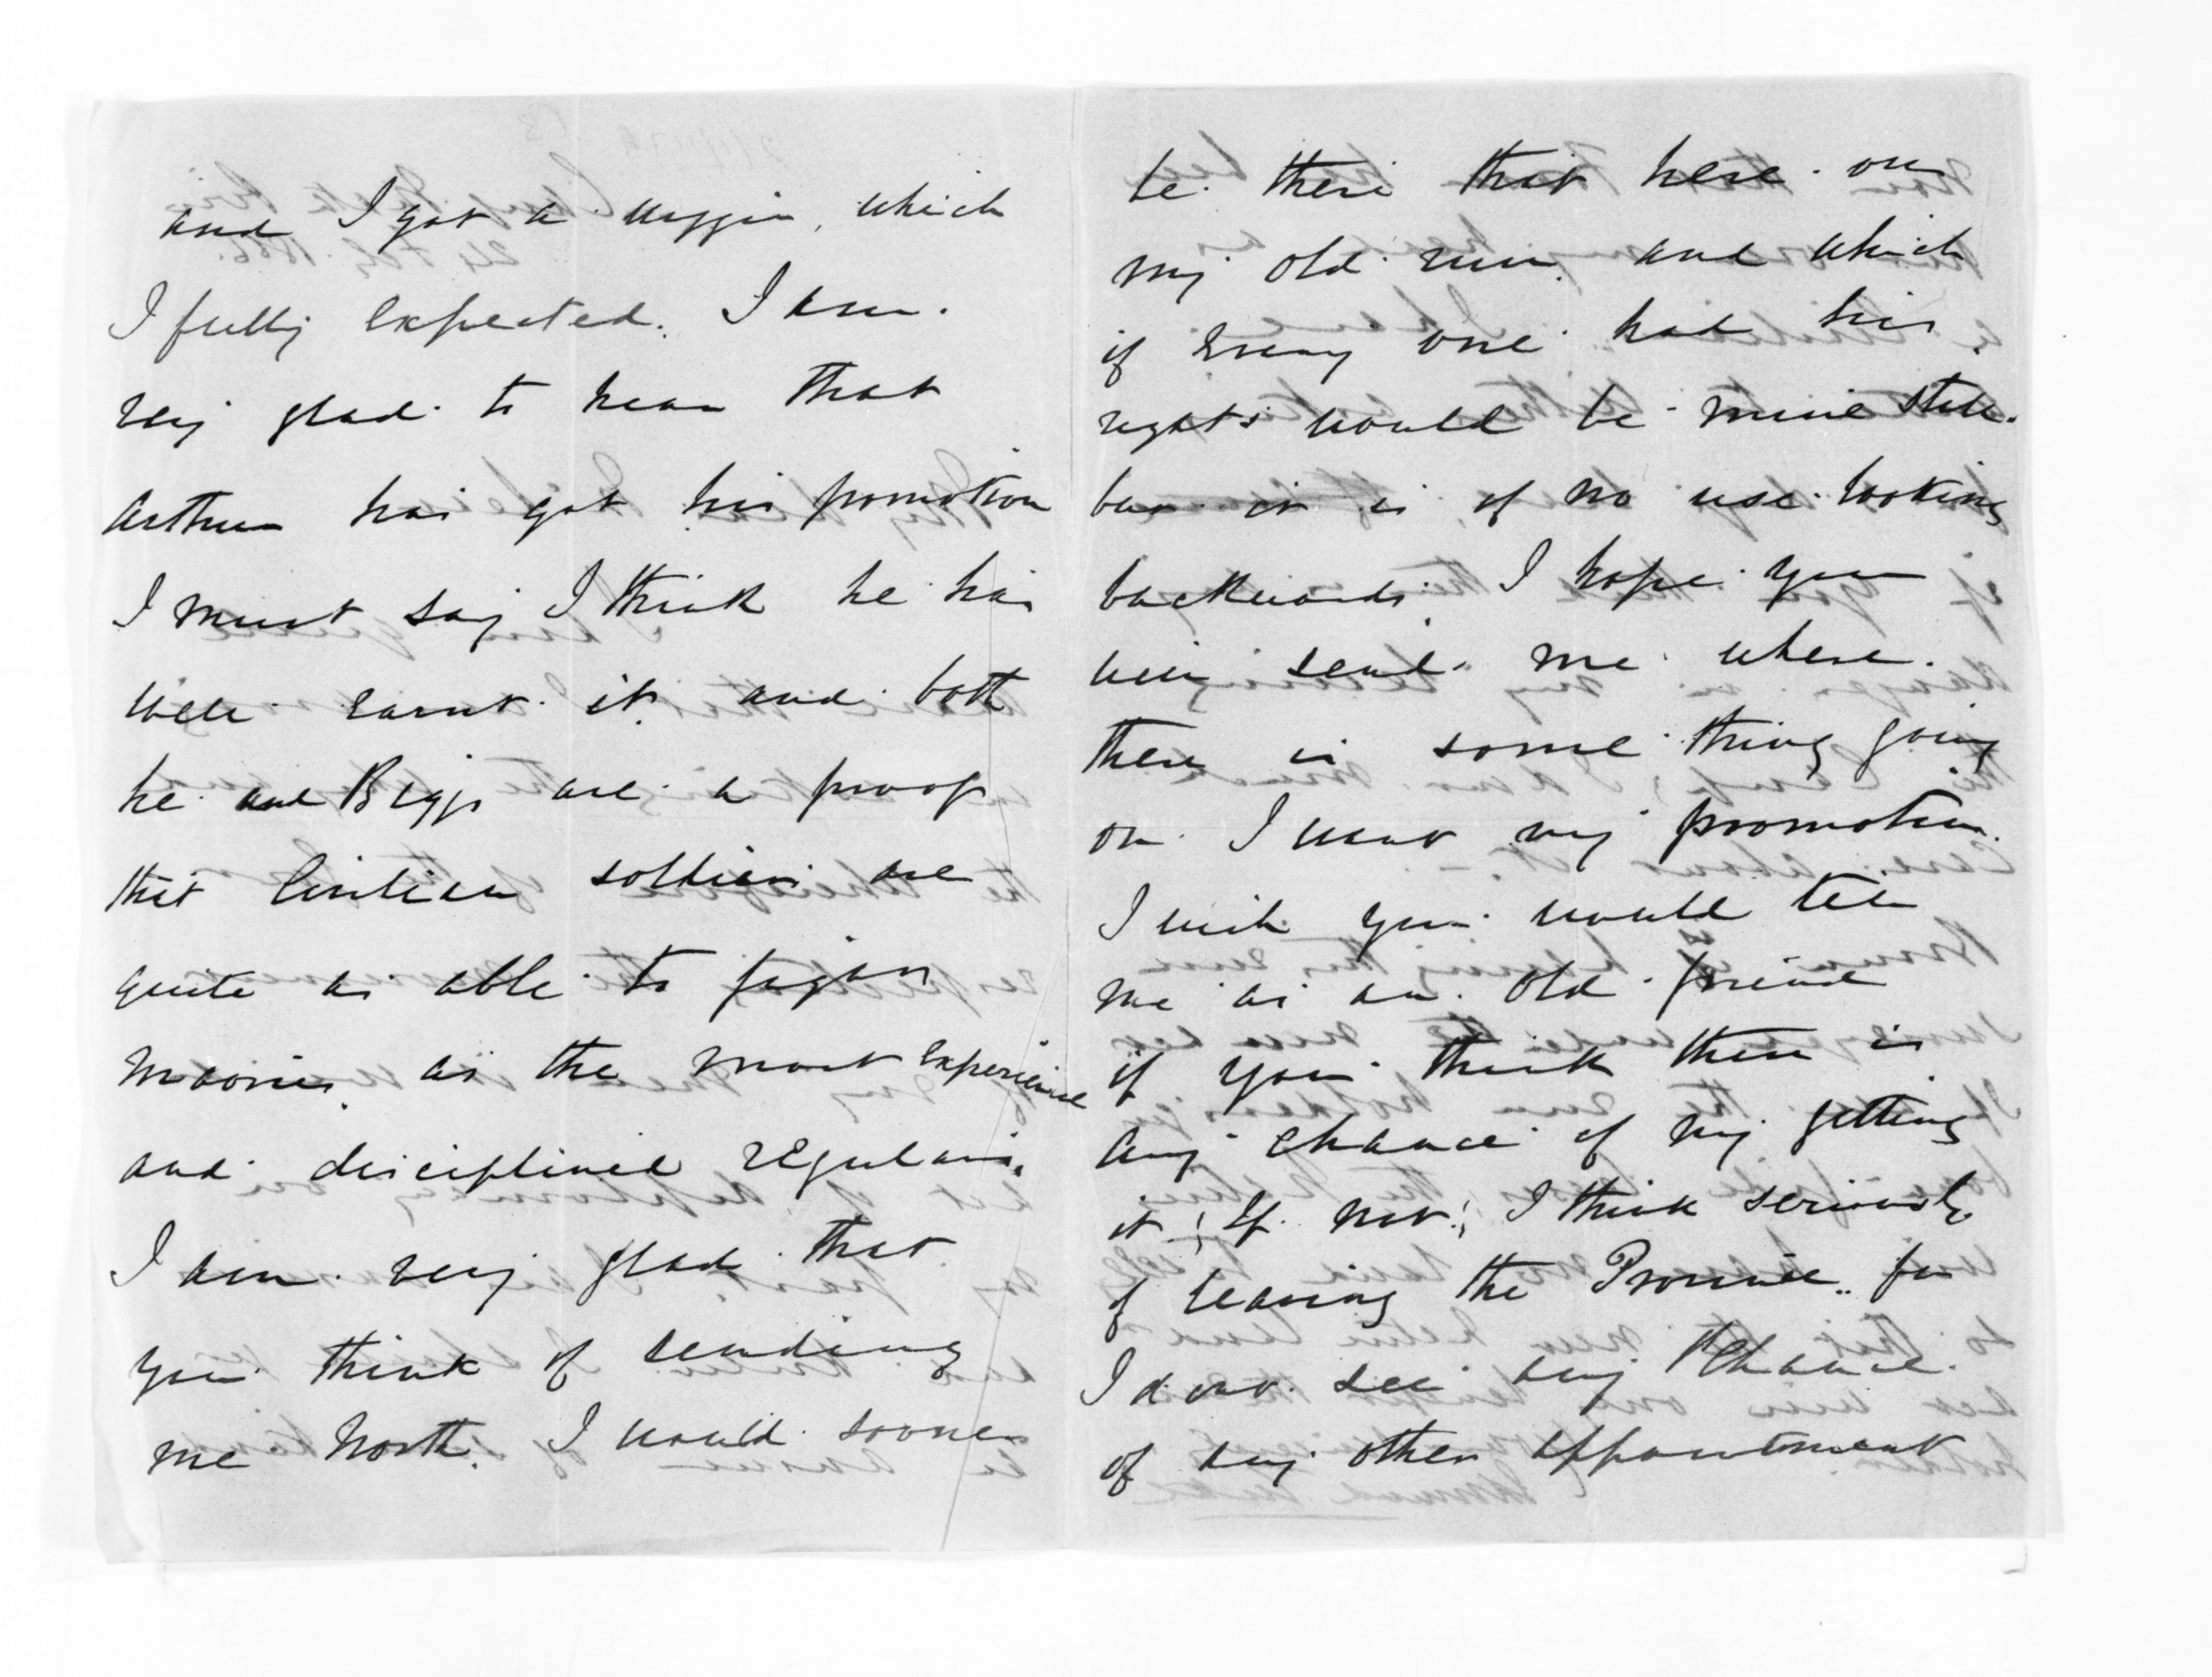 and I got a wigging, which
I fully expected. I am.
very glad to hear that
Arthur has got his promotion
I must say I think he has
well earnt it and both
he and Biggs are a proof
that Civilian soldiers are
quite as able to fight
maories as the most experience
and disciplined regulars.
I am very glad that
you think of sending
me North. I would sooner
be there that here on
my old run and which
if every one had his
rights would be mine still.
but it is of no use looking
backwards I hope you
will send me where
there is some thing going
on I want my promotion.
I wish you would tell
me as an old friend
if you think there is
any chance of my getting
it; If not; I think seriously
of leaving the Province.. for
I do not see any Chance
of any other appointment